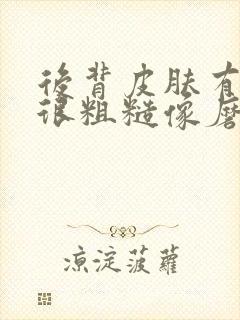 后背皮肤有
很粗糙像磨
凉淀菠萝